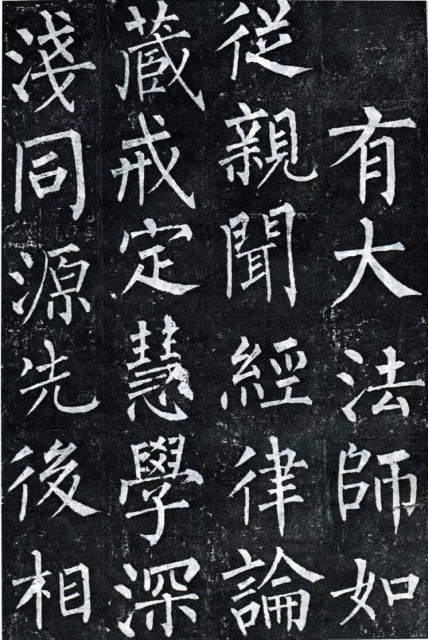 有大法師如
從親聞經律論
藏戒定慧學深
淺同源先後相